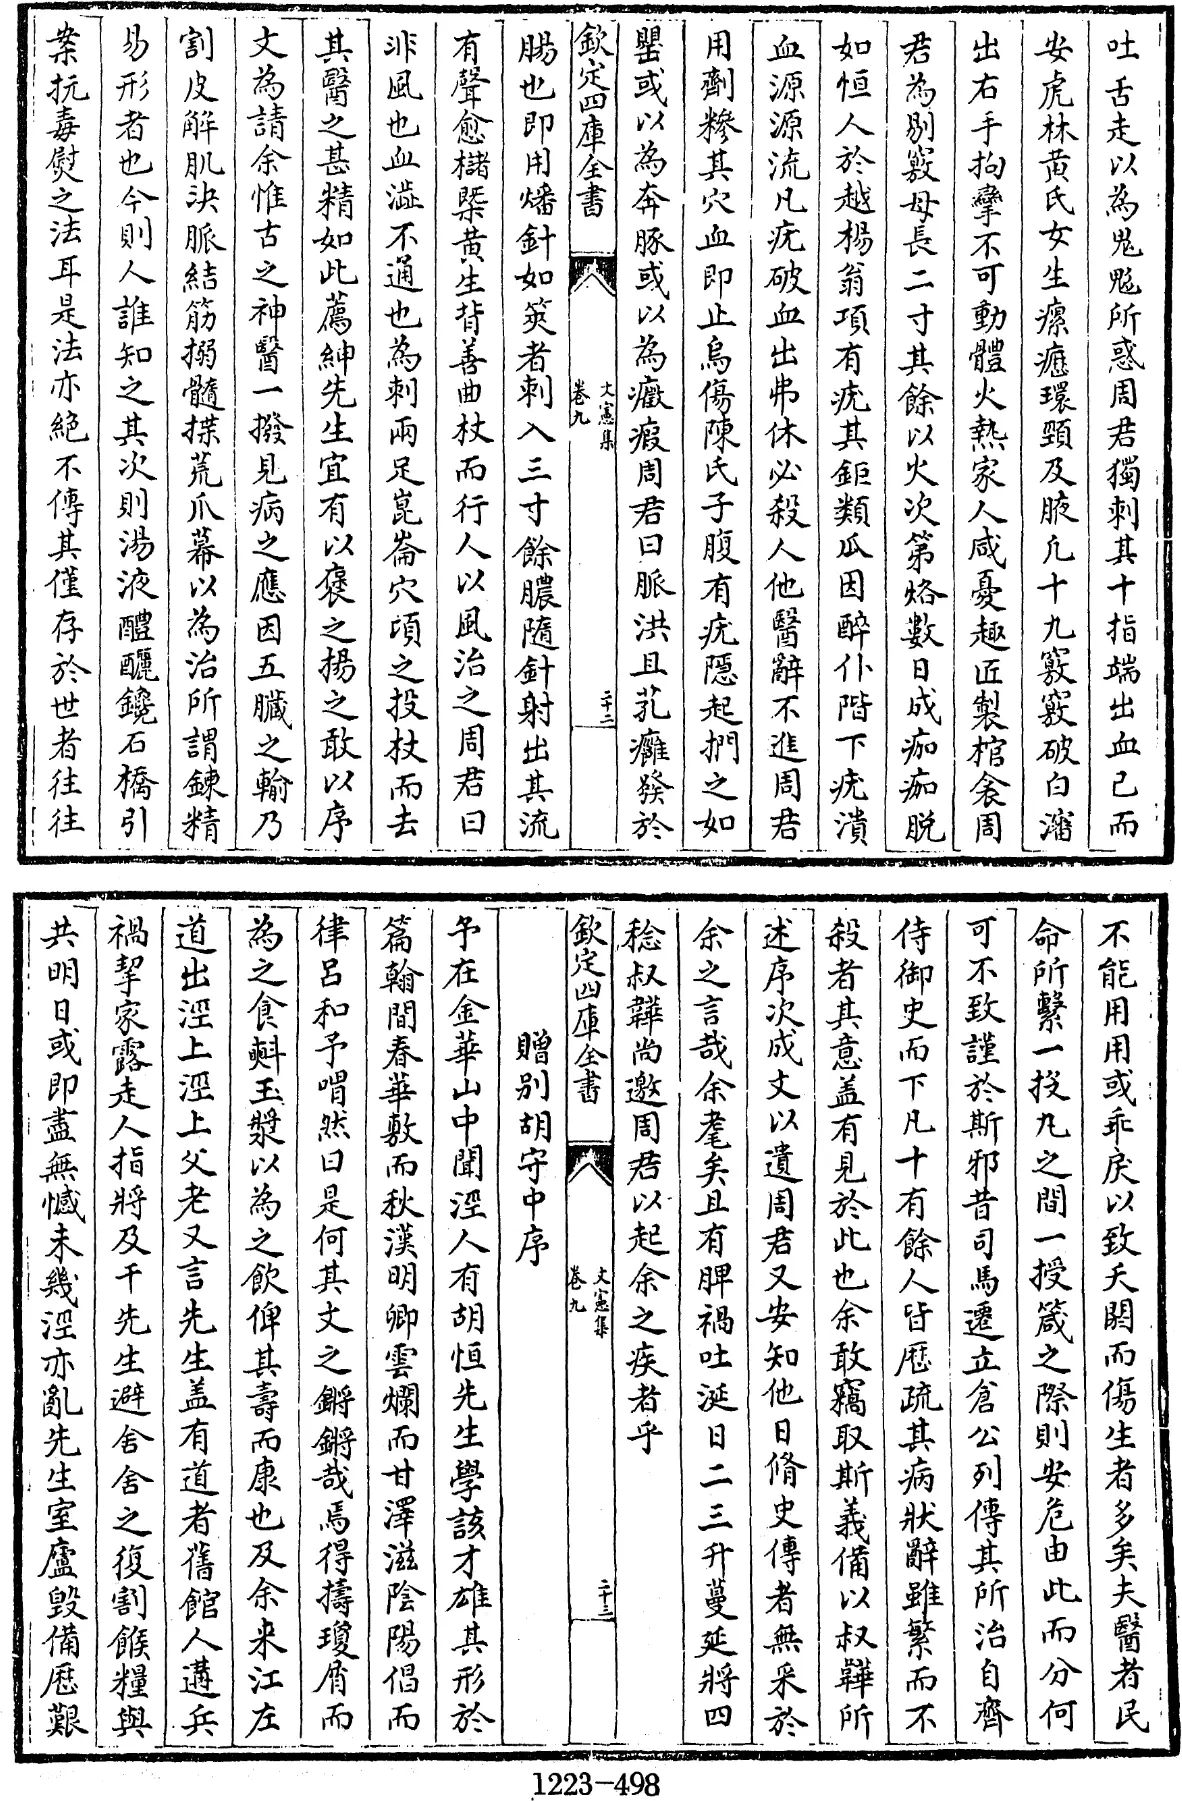 吐舌走以為鬼魅所惑周君獨刺其十指端出血已而
安虎林黄氏女生瘰癧環頸及腋凢十九竅竅破白瀋
出右手拘攣不可動體火熱家人咸憂趣匠製棺衾周
君為剔竅母長二寸其餘以火次第烙數日成痂痂脱
如恒人於越楊翁項有疣其鉅類瓜因醉仆階下疣潰
血源源流凡疣破血出弗休必殺人他醫辭不進周君
用劑糝其穴血即止烏傷陳氏子腹有疣隱起捫之如
罌或以為奔豚或以為癥瘕周君曰脈洪且芤癰發於
欽定四庫全書
文憲集
卷九
二十二
腸也即用燔針如筴者刺入三寸餘膿隨針射出其流
有聲愈櫧槩黄生背善曲杖而行人以風治之周君曰
非風也血澁不通也為刺兩足崑崙穴頃之投杖而去
其醫之甚精如此薦紳先生宜有以褒之揚之敢以序
文為請余惟古之神醫一撥見病之應因五臓之輸乃
割皮解肌決脈結筋搦髓揲荒爪幕以為治所謂鍊精
易形者也今則人誰知之其次則湯液醴釃鑱石橋引
案抏毒熨之法耳是法亦絶不傳其僅存於世者往往
不能用用或乖戾以致夭閼而傷生者多矣夫醫者民
命所繫一投丸之間一授箴之際則安危由此而分何
可不致謹於斯邪昔司馬遷立倉公列傳其所治自齊
侍御史而下凡十有餘人皆厯疏其病狀辭雖繁而不
殺者其意盖有見於此也余敢竊取斯義備以叔韡所
述序次成文以遺周君又安知他日脩史傳者無采於
余之言哉余耄矣且有脾禍吐涎日二三升蔓延將四
稔叔韡尚邀周君以起余之疾者乎
欽定四庫全書
文憲集
卷九
二十三
贈别胡守中序
予在金華山中聞涇人有胡恒先生學該才雄其形於
篇翰間春華敷而秋漢明卿雲爛而甘澤滋陰陽倡而
律呂和予喟然曰是何其文之鏘鏘哉焉得擣瓊屑而
為之食𣂏玉漿以為之飲俾其壽而康也及余来江左
道出涇上涇上父老又言先生盖有道者舊館人遘兵
禍挈家露走人指將及千先生避舍舍之復割餱糧與
共明日或即盡無憾未幾涇亦亂先生室廬毁備厯艱
1223-498